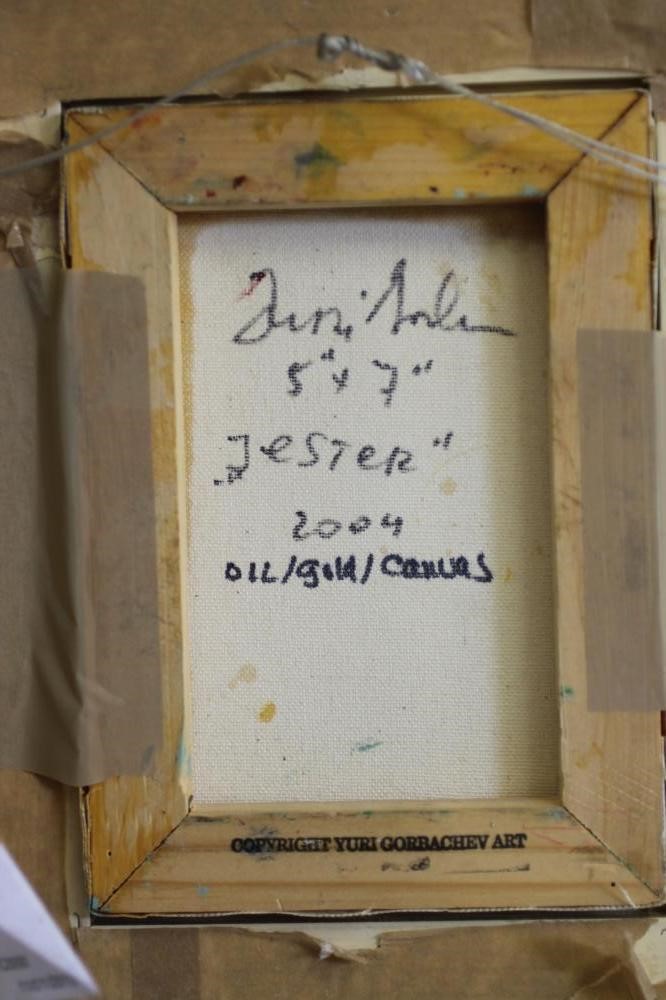 Yuri Gorb
5" x 7"
„Jester"
2004
OIL/gold/Canvas
COPYRIGHT YURI GORBACHEV ART